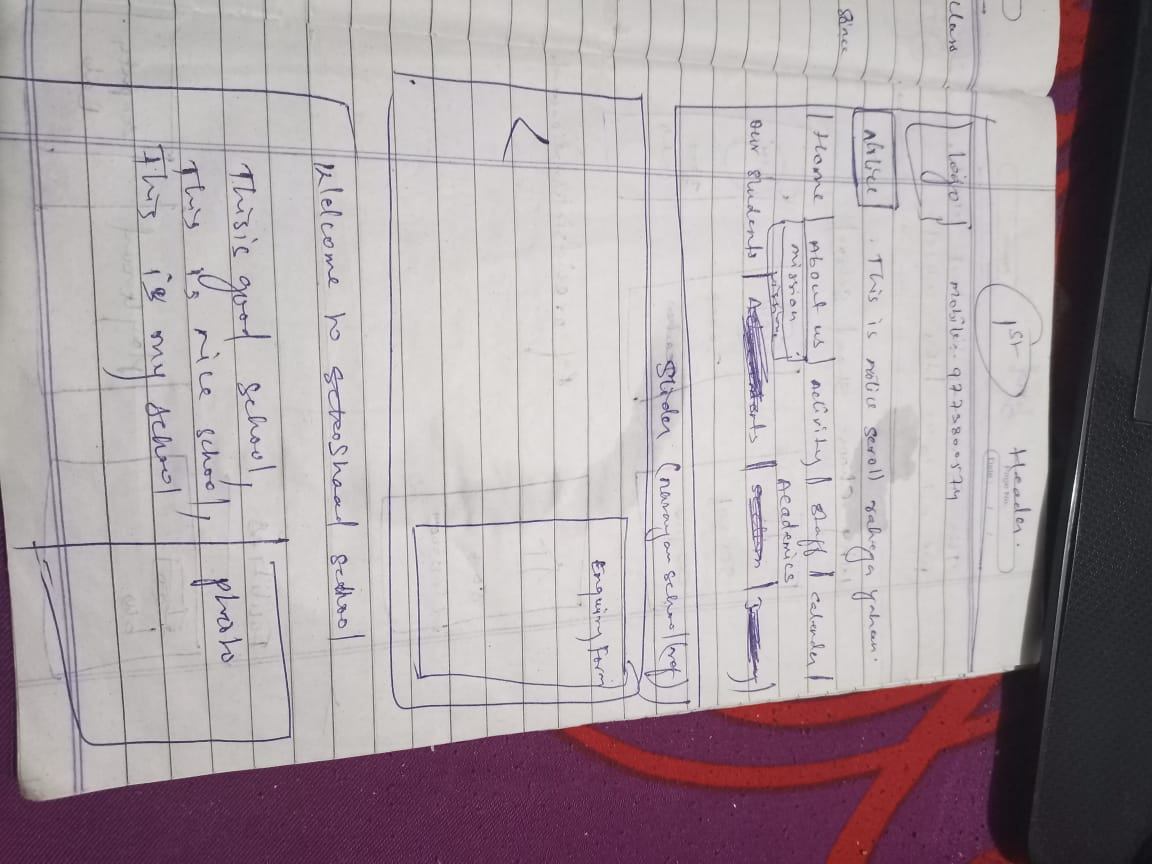 1st Header.
Page No.
Date
Class
Logo Mobile:- 9773800574
Notice This is notice scroll rahega yahan.
Since
Home About us Activity Staff Calender
mission
Academics
our students
Slider (narayan school (ref)
Enquiry Form
<
Welcome to Shaad school
This is good school,
This is nice school,
This is my school
photo